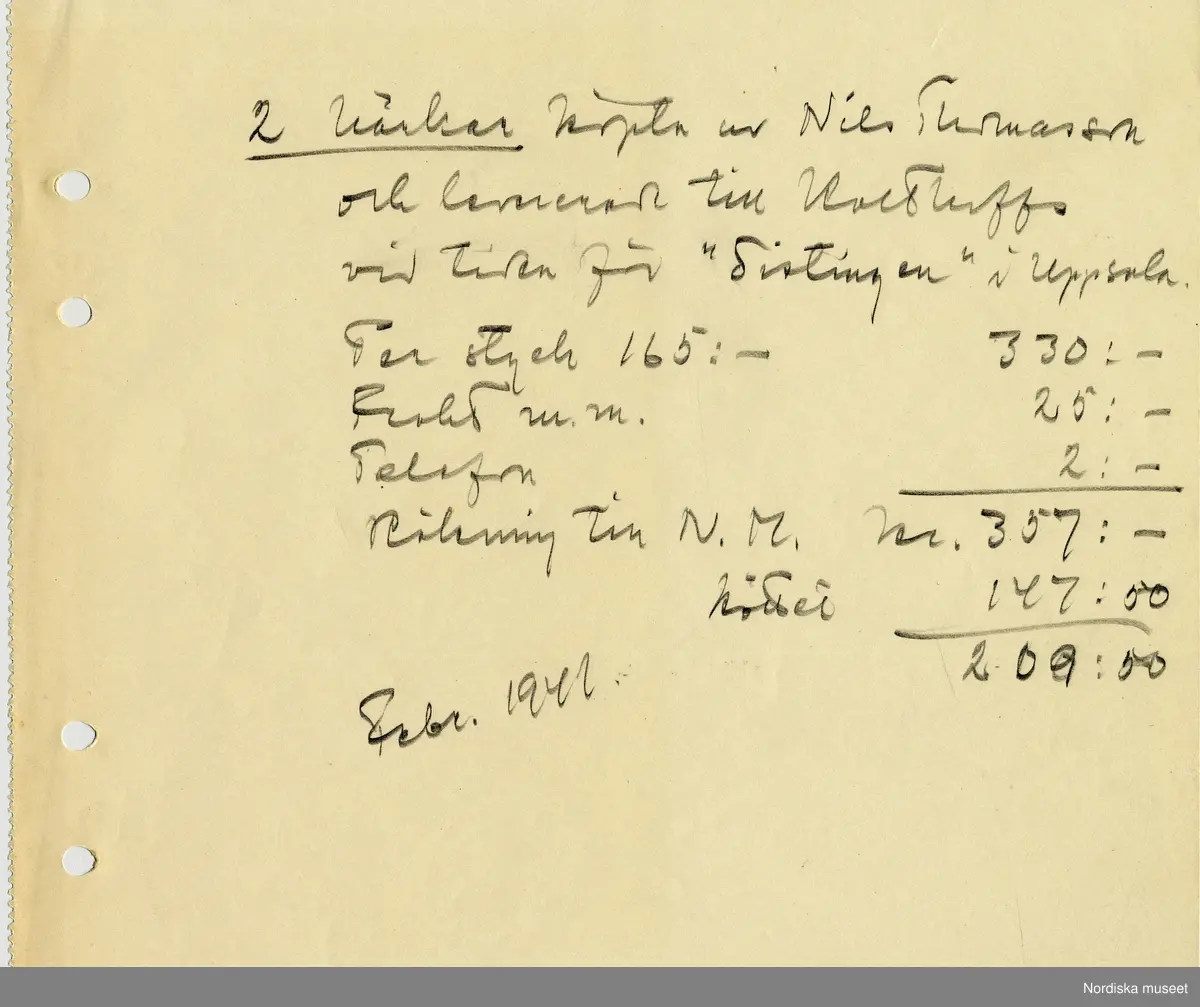 2 Härkar köpta av Nils Thomasson
och levererade till Kolthoffs
vid tiden för "Distingen" i Uppsala.
Per styck 165:— 330:—
Frakt m.m. 25:—
Telefon 2:—
Räkning till N.M. kr. 357:—
köttet 147:50
209:50
Febr. 1941.
Nordiska museet